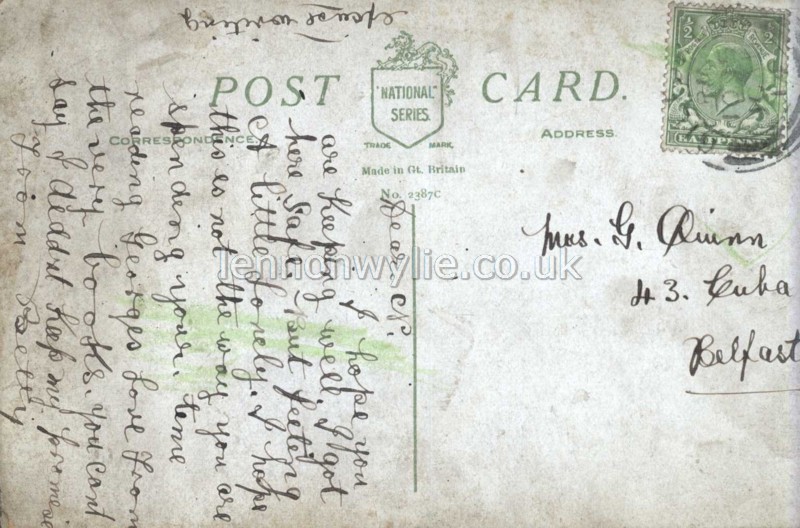 POST CARD.
"NATIONAL"
SERIES.
TRADE MARK.
CORRESPONDENCE.
ADDRESS.
Made in Gt. Britain
No. 2387C
Dear N. I hope you
are Keeping well, I got
here Safe. But feeling
a little lonely. I hope
this is not the way you are
spending your time
reading Georges love from
the very books. you cant
say I diddnt keep my promise
from Betty
excuse writing
Mrs. G. Quinn
43. Cuba
Belfast
lennonwylie.co.uk